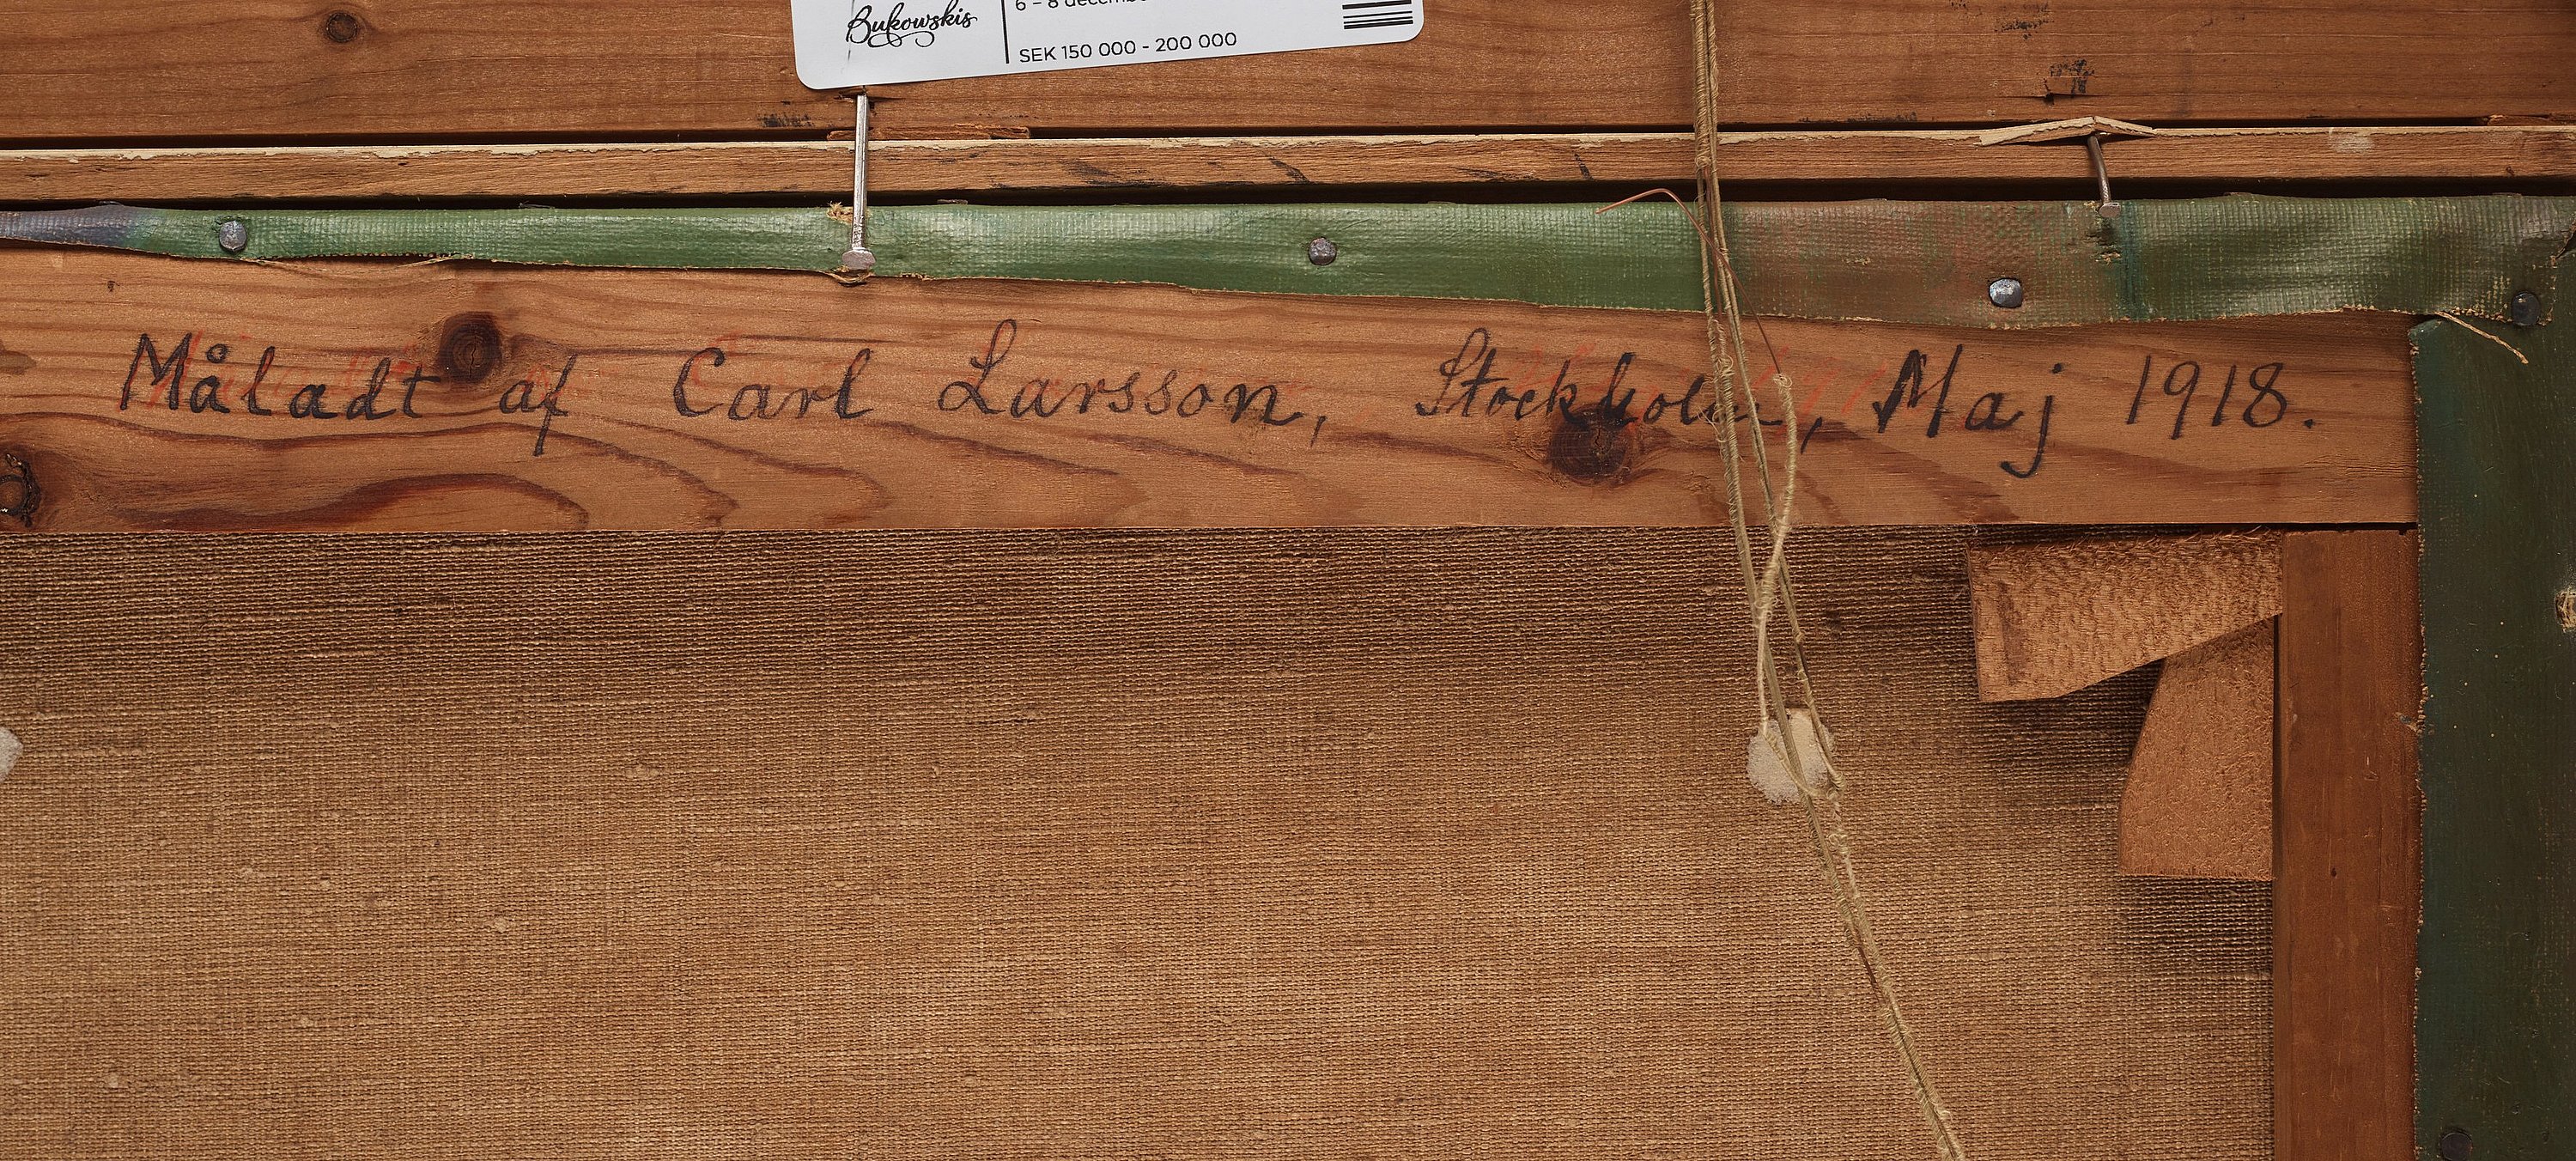 Bukowskis
6 – 8
SEK 150 000 - 200 000
Måladt af Carl Larsson, Stockholm, Maj 1918.